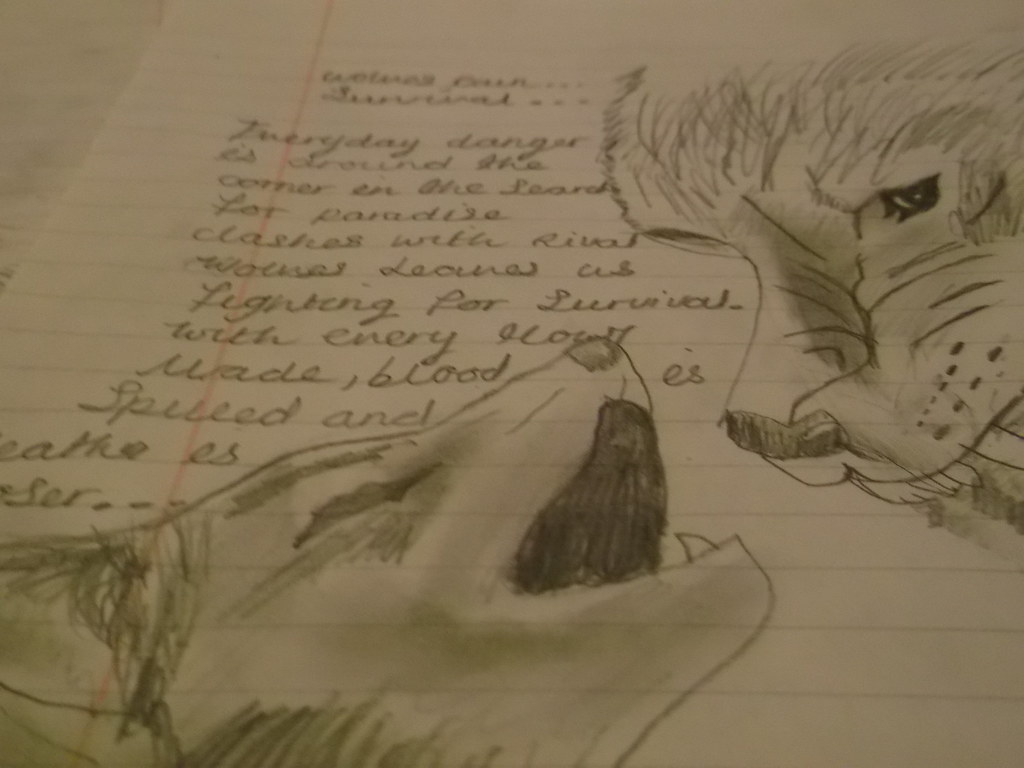 wolves rain....
Survival....
Everyday danger
is around the
corner in the search
for paradise
clashes with rival
wolves leaves us
fighting for survival.
with every blow
Made, blood is
Spilled and
is